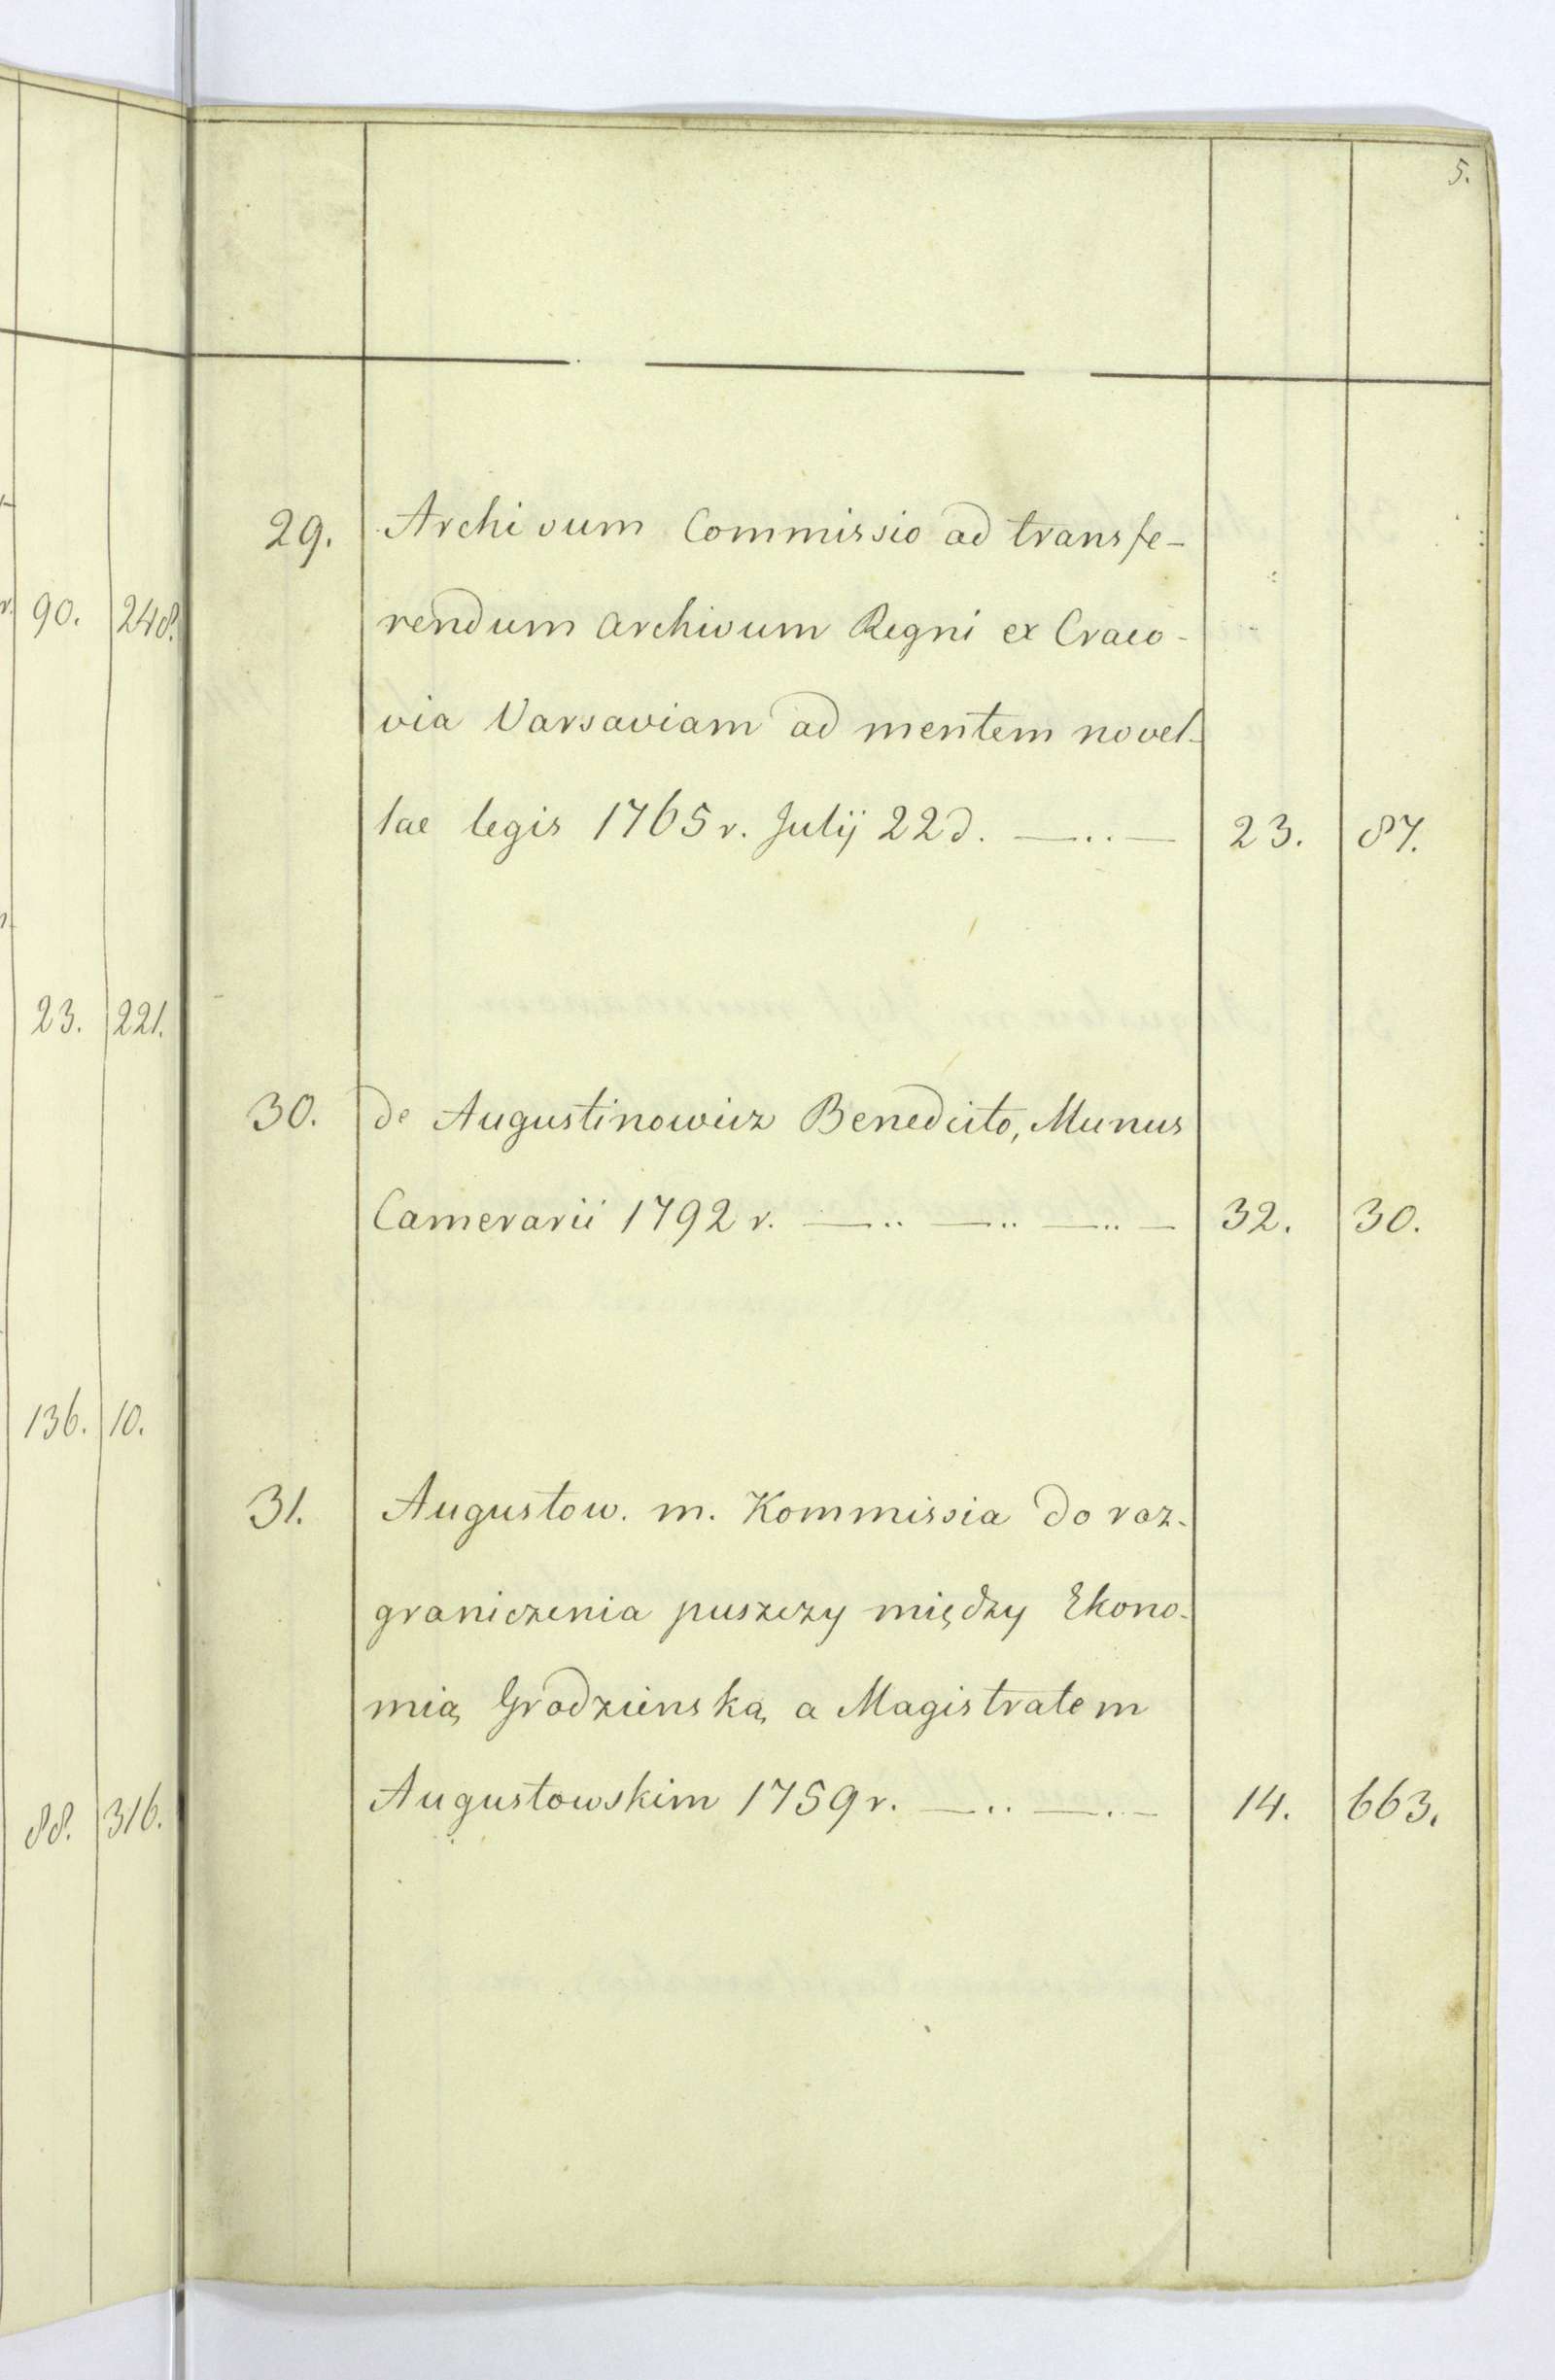 5.
29. Archivum Commissio ad transfe-
rendum archivum Regni ex Craco-
via Varsaviam ad mentem novel-
lae legis 1765 r. Julij 22 d. —..— 23. 87.
30. de Augustinowicz Benedicto, Munus
Camerarii 1792 r. —.. —.. —.. — 32. 30.
31. Augustow. m. Kommissia do roz-
graniczenia puszczy między Ekono-
mią Grodzienską a Magistratem
Augustowskim 1759 r. —.. —.— 14. 663.
90. 248.
23. 221.
136. 10.
88. 316.